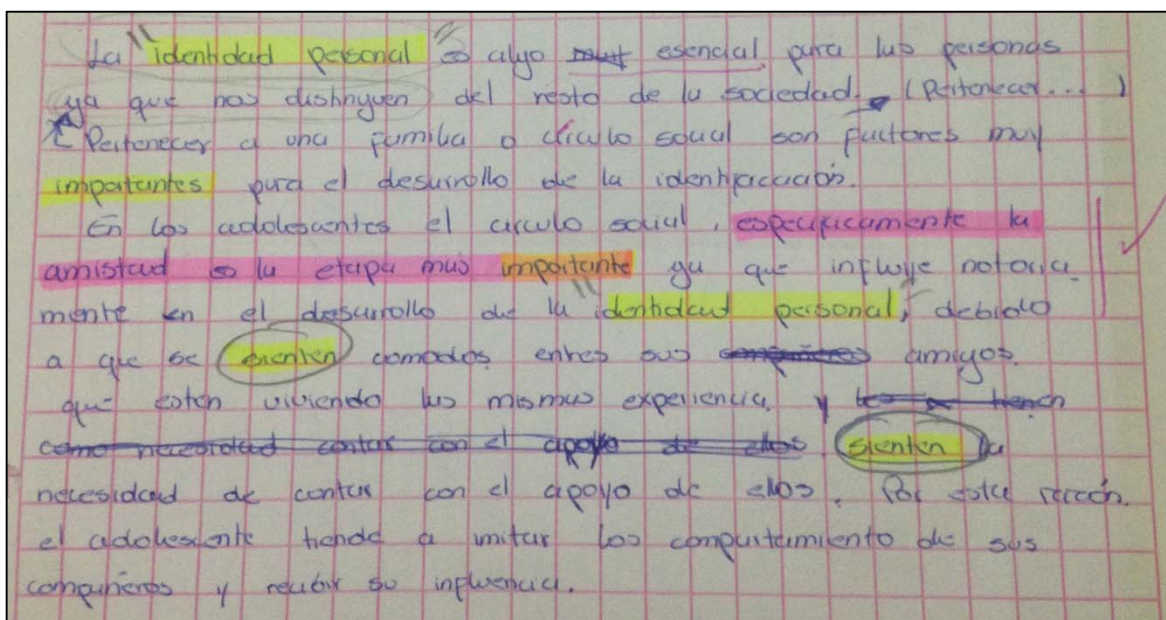 La "identidad personal" es algo muy esencial para las personas
ya que nos distinguen del resto de la sociedad. (Pertenecer...)
Pertenecer a una familia o círculo social son factores muy
importantes para el desarrollo de la identificación.
En los adolescentes el circulo social, especificamente la
amistad es la etapa mas importante ya que influye notoria
mente en el desarrollo de la "identidad personal", debido
a que se sienten comodos entres sus amigos
que estan viviendo las mismas experiencia y tienen
como necesidad contar con el apoyo de ellos sienten la
necesidad de contar con el apoyo de ellos. Por esta razón
el adolescente tiende a imitar los comportamiento de sus
compañeros y recibir su influencia.